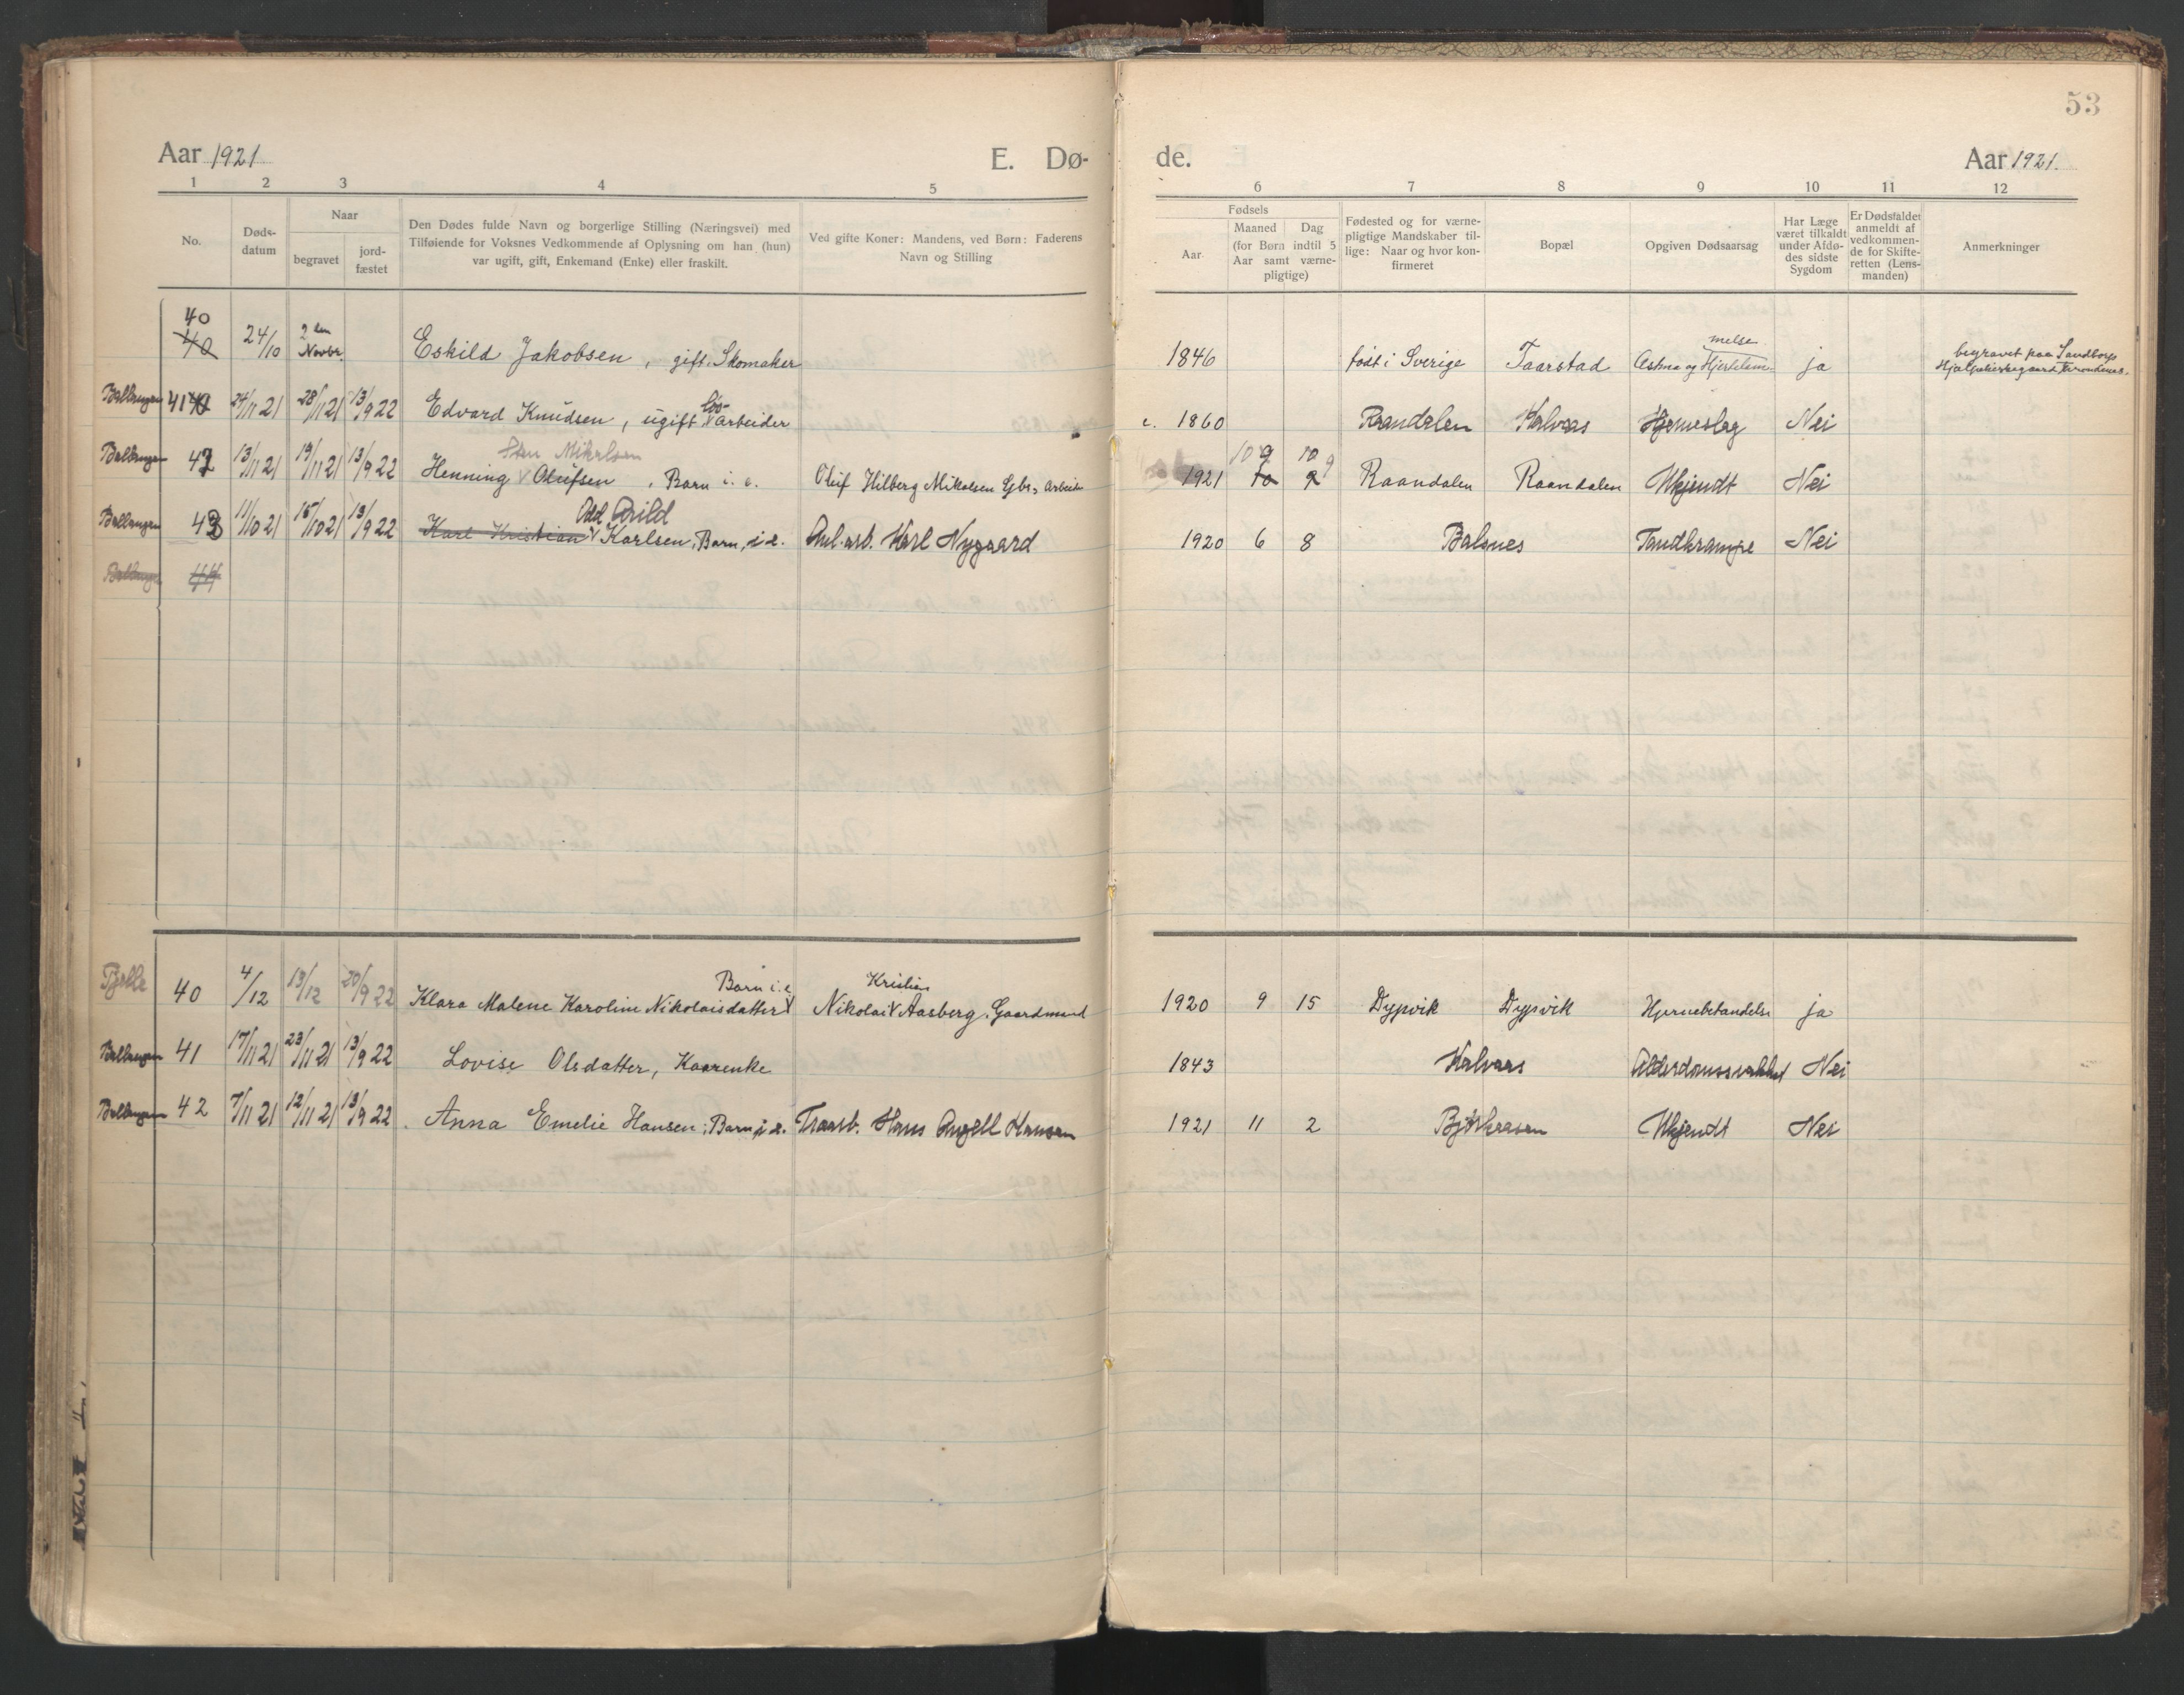 53
Aar 1921 E. Dø- de. Aar 1921.
1 2 3 4 5 6 7 8 9 10 11 12
No.
Døds-
datum
Naar
begravet
jord-
fæstet
Den Dødes fulde Navn og borgerlige Stilling (Næringsvei) med
Tilføiende for Voksnes Vedkommende af Oplysning om han (hun)
var ugift, gift, Enkemand (Enke) eller fraskilt.
Ved gifte Koner: Mandens, ved Børn: Faderens
Navn og Stilling
Fødsels
Aar
Maaned Dag
(for Børn indtil 5
Aar samt værne-
pligtige)
Fødested og for værne-
pligtige Mandskaber til-
lige: Naar og hvor kon-
firmeret
Bopæl
Opgiven Dødsaarsag
Har Læge
været tilkaldt
under Afdø-
des sidste
Sygdom
Er Dødsfaldet
anmeldt af
vedkommen-
de for Skifte-
retten (Lens-
manden)
Anmerkninger
40
40 24/10 2den Novbr. Eskild Jakobsen, gift. Skomaker 1846 født i Sverige Taarstad Astma og Hjertelam- ja
melse
begravet paa Sandborgs
Ballangen 41 24/11 21 28/11 21 13/9 22 Edvard Knudsen, ugift Arbeider c. 1860 Raandalen Kalvaas Nei
Løs-
Sten Mikalsen
10 9 10 9
Ballangen 42 13/11 21 19/11 21 13/9 22 Henning Olufsen, Barn i. e. Oluf Hilberg Mikalsen Gbr., Arbeider 1921 10 9 Raandalen Raandalen Ukjendt Nei
Odd Arild
Ballangen 43 11/10 21 15/10 21 13/9 22 Karl Kristian Karlsen, Barn, i. e. Anl. arb. Karl Nygaard 1920 6 8 Balsnes Tandkrampe Nei
Ballangen 44
Barn i. e. Kristian
Fjelle 40 4/12 13/12 20/9 22 Klara Malene Karoline Nikolaisdatter Nikolai Aasberg, Gaardmand 1920 9 15 Dypvik Dypvik Hjernebetændelse ja
Ballangen 41 17/11 21 23/11 21 13/9 22 Lovise Olsdatter, Kaarenke 1843 Kalvaas Alderdomssvakhet Nei
Ballangen 42 7/11 21 12/11 21 13/9 22 Anna Emelie Hansen, Barn, i e. Hans Angell Hansen 1921 11 2 Bjørkaasen Ukjendt Nei